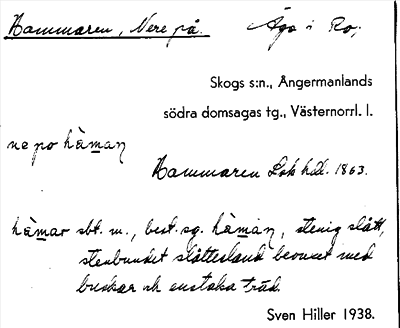 Hammaren, Nere på. Äga i Ro;
Skogs s:n., Ångermanlands
södra domsagas tg., Västernorrl. l.
ne po hàman
Hammaren Lok hdl. 1863.
hàmar sbt. m., best. sg. hàman, stenig slått,
stenbundet slåttesland bevuxet med
buskar ok enstaka träd.
Sven Hiller 1938.